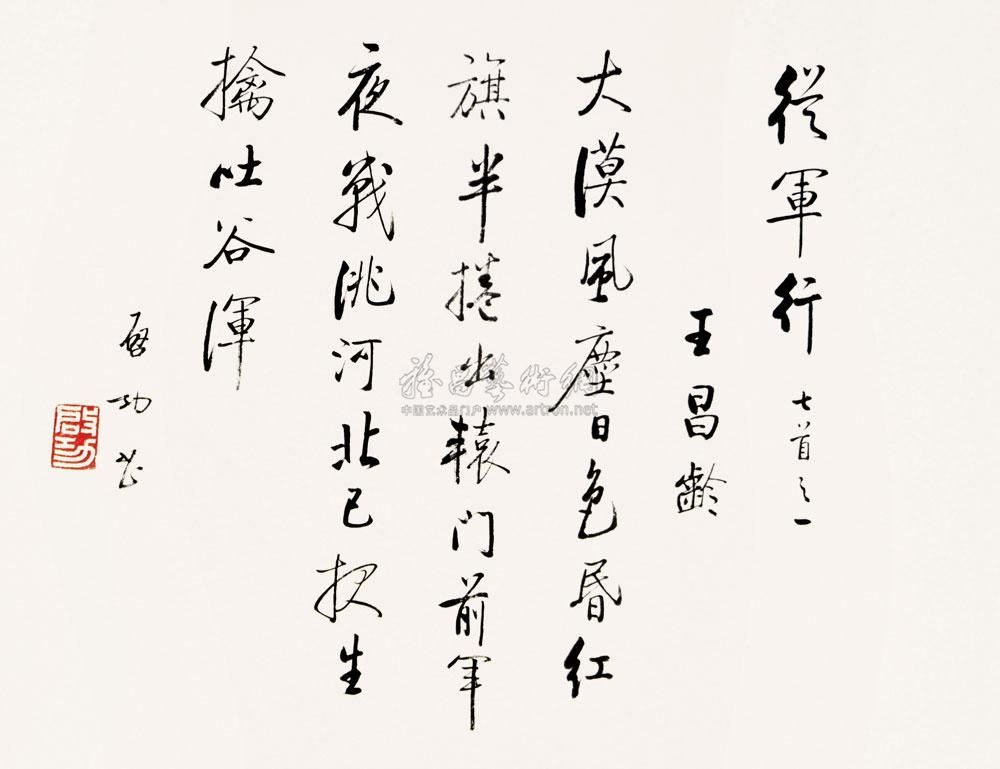 從軍行 七首之一
王昌齡
大漠風塵日色昏紅
旗半捲出轅門前軍
夜戰洮河北已報生
擒吐谷渾
啟功書
啟功
雅昌藝術網
中国艺术品门户 www.artron.net